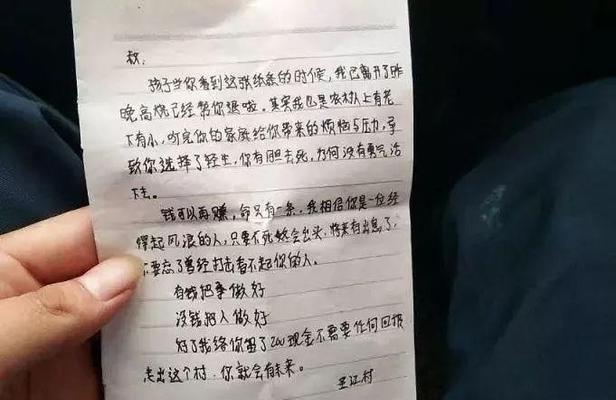 孩子当你看到这张纸条的时候，我已离开了昨
晚高烧已经帮你退啦。其实我也是农村人上有老
下有小，听完你的家族给你带来的烦恼与压力，导
致你选择了轻生，你有胆去死，为何没有勇气活
下去。
钱可以再赚，命只有一条，我相信你是一位经
得起风浪的人，只要不死终会出头，将来有出息了，
不要忘了曾经打击看不起你的人。
有钱把事做好
没钱把人做好
对了我给你留了200现金不需要任何回报
走出这个村，你就会有未来。